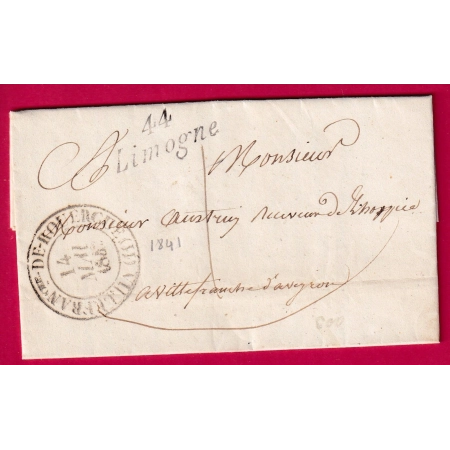 44
Limogne
Monsieur
Monsieur Austruy receveur de l'hospice
1841
a villefranche d'aveyron
VILLEFRANche-DE-ROUERGUE
14
MAI